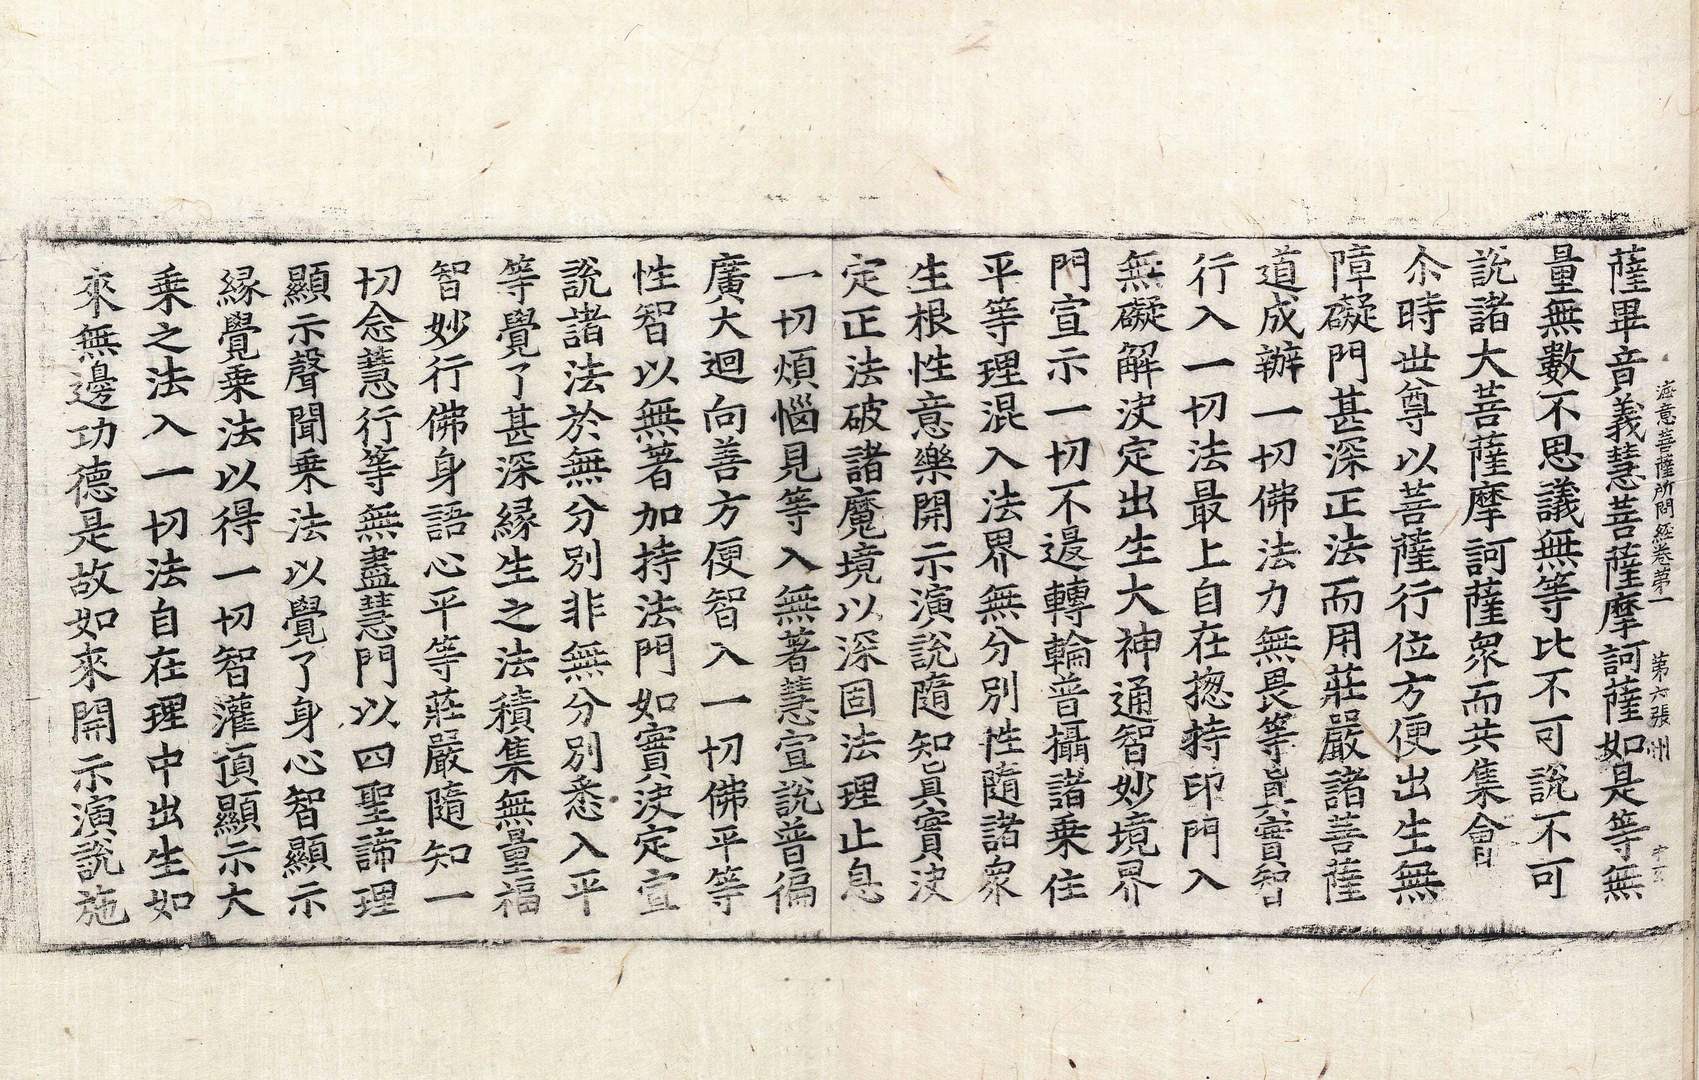 海意菩薩所問經卷第一 第六張 州
薩畢音義慧菩薩摩訶薩如是等無
量無數不思議無等比不可說不可
說諸大菩薩摩訶薩衆而共集會
尒時世尊以菩薩行位方便出生無
障礙門甚深正法而用莊嚴諸菩薩
道成辦一切佛法力無畏等眞實智
行入一切法最上自在揔持印門入
無礙解決定出生大神通智妙境界
門宣示一切不退轉輪普攝諸乗住
平等理混入法界無分別性隨諸衆
生根性意樂開示演說隨知眞實決
定正法破諸魔境以深固法理止息
一切煩惱見等入無著慧宣說普徧
廣大迴向善方便智入一切佛平等
性智以無著加持法門如實決定宣
說諸法於無分別非無分別悉入平
等覺了甚深緣生之法積集無量福
智妙行佛身語心平等莊嚴隨知一
切念慧行等無盡慧門以四聖諦理
顯示聲聞乗法以覺了身心智顯示
緣覺乗法以得一切智灌頂顯示大
乗之法入一切法自在理中出生如
來無邊功德是故如來開示演說施